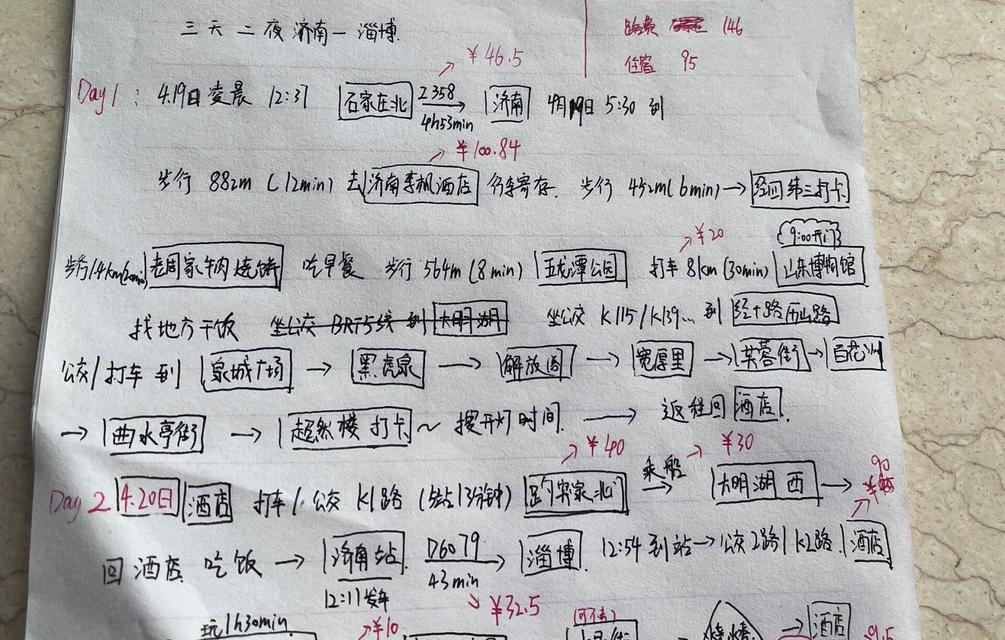 三天二夜 济南—淄博
路费 146
住宿 95
Day1: 4.19日凌晨 12:37 石家庄北 Z358 4h53min 济南 4月19日 5:30 到
¥46.5
¥100.84
步行 882m (12min) 去 济南季枫酒店 行李寄存. 步行 452m(6min) → 经四纬三打卡
¥20
9:00开门
老周家牛肉烧饼 吃早餐 步行 564m (8min) 五龙潭公园 打车 8km (30min) 山东博物馆
找地方干饭 坐公交 BRT5线 到 大明湖 坐公交 K115/K139... 到 经十路历山路
公交/打车 到 泉城广场 → 黑虎泉 → 解放阁 → 宽厚里 → 芙蓉街 → 百花洲
→ 曲水亭街 → 超然楼 打卡 ~ 搜开灯时间 → 返程回 酒店.
¥40
¥30
90
Day 2 4.20日 酒店 打车/公交 K1路 (5站13分钟) 北门 乘船 → 大明湖 西 →
回酒店 吃饭 → 济南站 D6079 43min 淄博 12:54到站 → 公交2路/K2路 酒店
12:11发车
¥32.5
玩1h30min
¥10
可不去
烧烤
→ 酒店
91.5